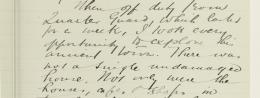 When off duty from
Quarter Guard, which lasts
for a week, I took every
opportunity to explore this
ancient town. There was
not a single undamaged
house. Not only were the
houses, cafes & shops in